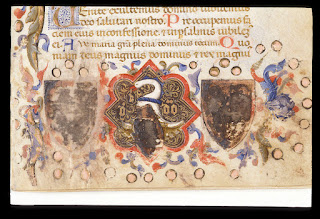 enite exultemus domino iubilemus
deo salutari nostro Pre occupemus fa
ciem eius inconfessione et inpsalmis
Ave maria gratia plena dominus tecum Quo
niam deus magnus dominus et rex